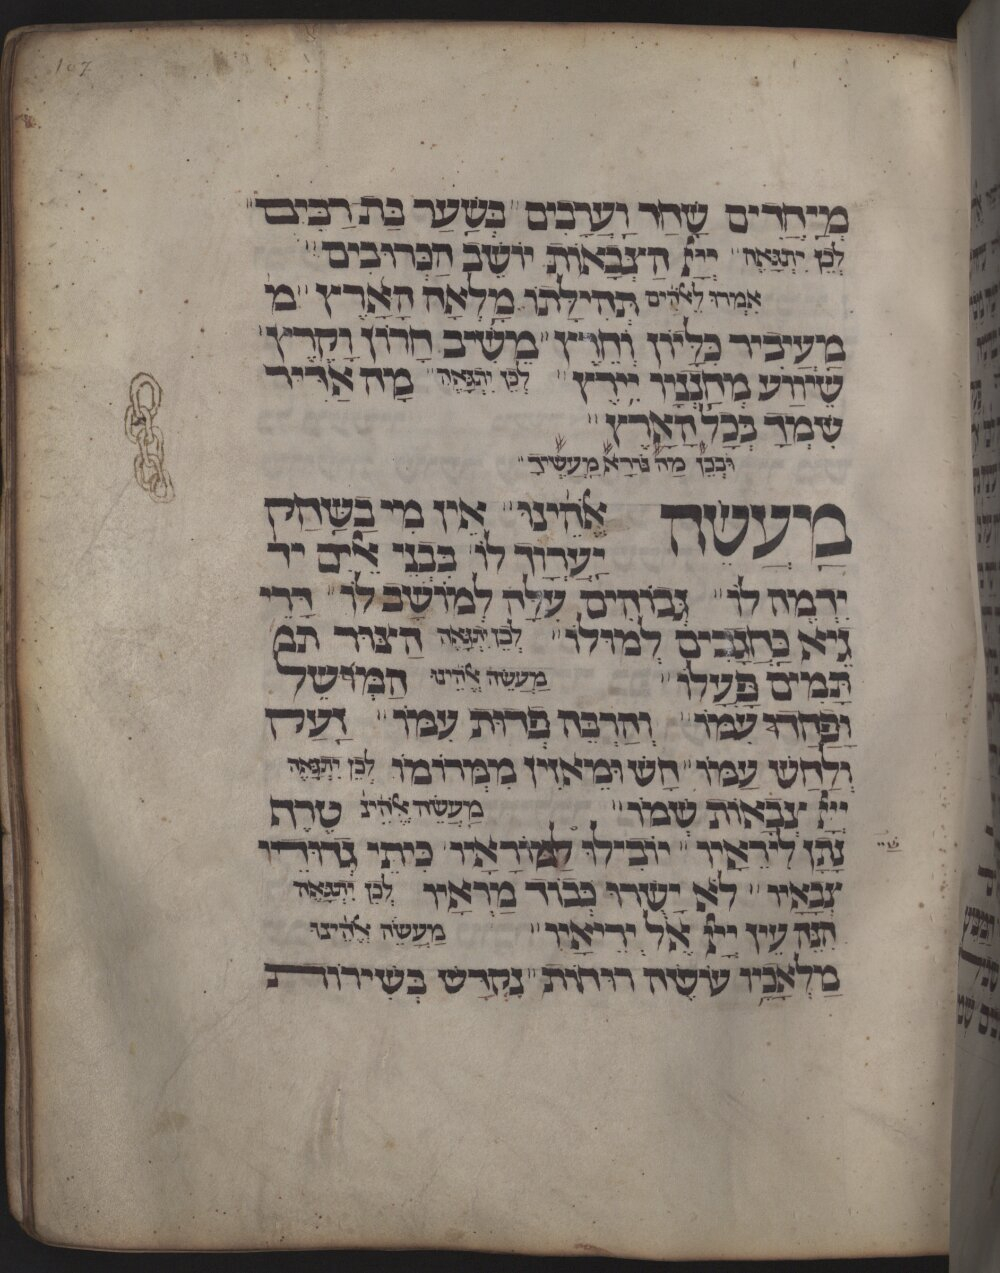 107
מְיַחֲדִים שַׁחַר וַעֲרָבִים״ כְּשַׁעַר בַּת רַבִּים״
לָכֵן יִתְגָּאֶה״ יְיָ הַצְּבָאוֹת יוֹשֵׁב הַכְּרוּבִים״
אִמְרוּ לֵאלֹהִים תְּהִילָּתוֹ מָלְאָה הָאָרֶץ״ מ
מַעֲבִיר כִּלָּיוֹן וְחָרֶץ״ מֵשִׁיב חָרוֹן וָקֶרֶץ״
שִׁיוּעַ מְחַנְּנָיו יֵרֶץ״ לָכֵן יִתְגָּאֶה״ מָה אַדִּיר
שִׁמְךָ בְּכָל הָאָרֶץ״
וּבְכֵן מַה נּוֹרָא מַעֲשֶׂיךָ״
מַעֲשֵׂה אֱלֹהֵינוּ״ אֵין מִי בַשַּׁחַק
יַעֲרוֹךְ לוֹ בִּבְנֵי אֵלִים יד
יִדְמֶה לוֹ״ גְּבוֹהִים עָלָה לְמוֹשָׁב לוֹ״ דָּרֵי
גֵיא כַּחֲגָבִים לְמוּלוֹ״ לָכֵן יִתְגָּאֶה הַצּוּר תמ
תָּמִים פָּעֳלוֹ״ מַעֲשֵׂה אֱלֹהֵינוּ הַמּוֹשֵׁל
וּפַחַד עִמּוֹ״ וְהַרְבֵּה פְדוּת עִמּוֹ״ זָעַק
וְלַחַשׁ עַמּוֹ״ חָשׁ וּמַאֲזִין מִמְּרוֹמוֹ לָכֵן יִתְגָּאֶה
יְיָ צְבָאוֹת שְׁמוֹ״ מַעֲשֵׂה אֱלֹהֵינ טֶרֶף
נָתַן לִירֵאָיו״ יוֹבִילוּ לְמוֹרָאָיו כִּיתֵּי גְּדוּדֵי
צְבָאָיו״ לֹא יָשׁוּרוּ כְּבוֹד מַרְאָיו לָכֵן יִתְגָּאֶה
הִנֵּה עֵין יְיָ אֶל יְרֵיאָיו״ מַעֲשֵׂה אֱלֹהֵינוּ
מַלְאָכָיו עֹשֶׂה רוּחוֹת״ נִקְדָּשׁ בְּשִׁירוֹת